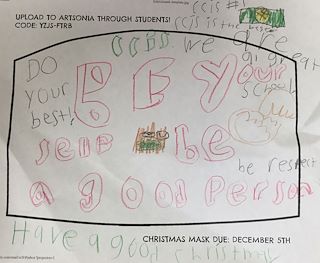 UPLOAD TO ARTSONIA THROUGH STUDENTS!
CODE: YZJS-FTRB
CCIS #1
CCIS is the best
CCIS. we are
a great
school
DO
your
best!
BE Your
self be
a good Person
be respect
Have a good christmas
CHRISTMAS MASK DUE: DECEMBER 5TH